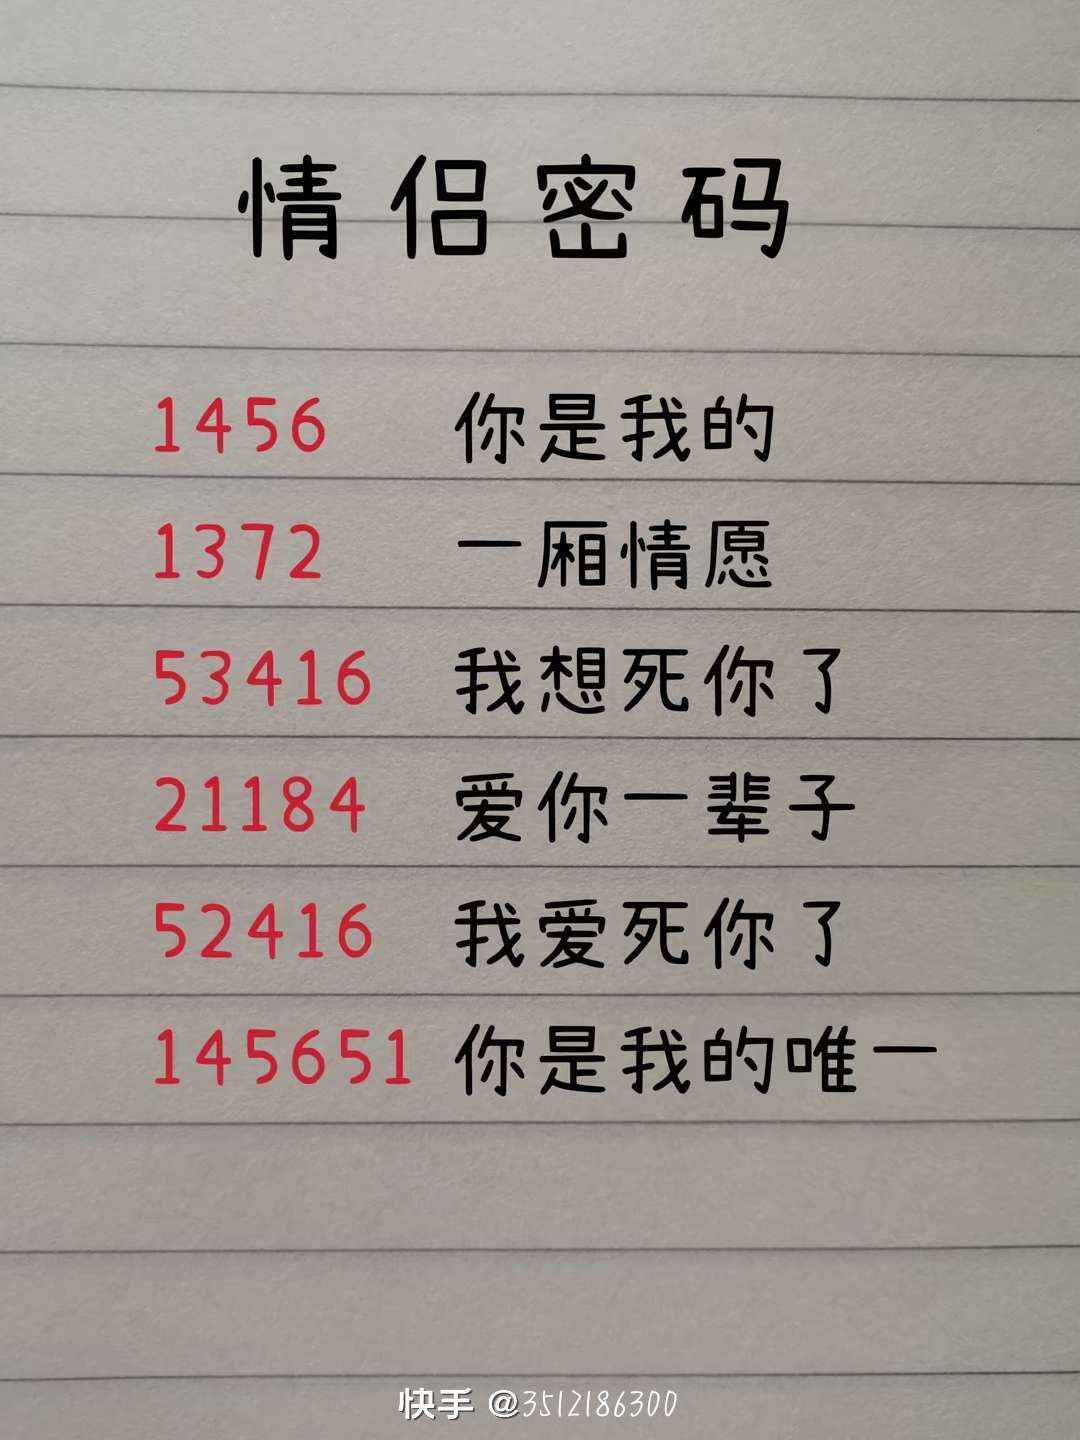 情侣密码
1456 你是我的
1372 一厢情愿
53416 我想死你了
21184 爱你一辈子
52416 我爱死你了
145651 你是我的唯一
快手 @3512186300